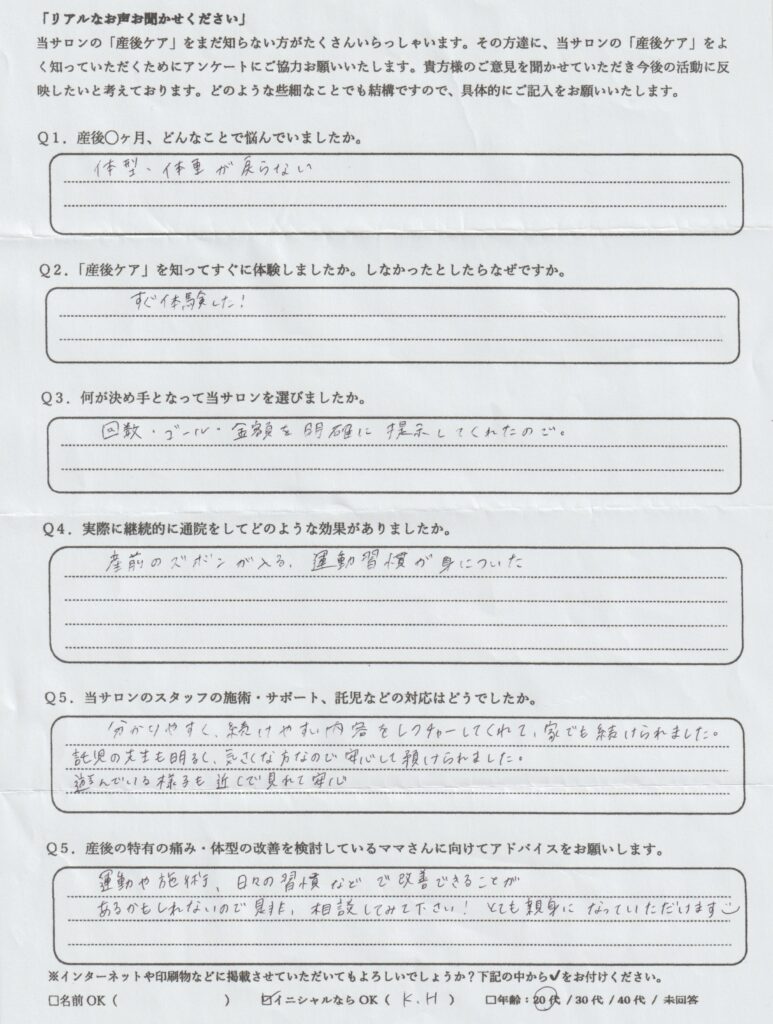 「リアルなお声お聞かせください」
当サロンの「産後ケア」をまだ知らない方がたくさんいらっしゃいます。その方達に、当サロンの「産後ケア」をよ
く知っていただくためにアンケートにご協力お願いいたします。貴方様のご意見を聞かせていただき今後の活動に反
映したいと考えております。どのような些細なことでも結構ですので、具体的にご記入をお願いいたします。
Q1．産後〇ヶ月、どんなことで悩んでいましたか。
体型・体重が戻らない
Q2．「産後ケア」を知ってすぐに体験しましたか。しなかったとしたらなぜですか。
すぐ体験した！
Q3．何が決め手となって当サロンを選びましたか。
回数・ゴール・金額を明確に提示してくれたので。
Q4．実際に継続的に通院をしてどのような効果がありましたか。
産前のズボンが入る、運動習慣が身についた
Q5．当サロンのスタッフの施術・サポート、託児などの対応はどうでしたか。
分かりやすく、続けやすい内容をレクチャーしてくれて、家でも続けられました。
託児の先生も明るく、気さくな方なので安心して預けられました。
遊んでいる様子も近くで見れて安心
Q5．産後の特有の痛み・体型の改善を検討しているママさんに向けてアドバイスをお願いします。
運動や施術、日々の習慣などで改善できることが
あるかもしれないので是非、相談してみて下さい！とても親身になっていただけます
※インターネットや印刷物などに掲載させていただいてもよろしいでしょうか？下記の中から✔をお付けください。
□名前OK（　　　　　　　　）　☑イニシャルならOK（ K.H ）　□年齢：20代 / 30代 / 40代 / 未回答